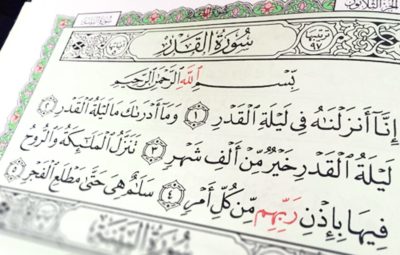 الجزء الثلاثون
ترتيبها ٩٧ سُورَةُ القَدْرِ آياتها ٥
بِسْمِ اللَّهِ الرَّحْمَٰنِ الرَّحِيمِ
إِنَّا أَنزَلْنَاهُ فِي لَيْلَةِ الْقَدْرِ ١ وَمَا أَدْرَاكَ مَا لَيْلَةُ الْقَدْرِ ٢
لَيْلَةُ الْقَدْرِ خَيْرٌ مِّنْ أَلْفِ شَهْرٍ ٣ تَنَزَّلُ الْمَلَائِكَةُ وَالرُّوحُ
فِيهَا بِإِذْنِ رَبِّهِم مِّن كُلِّ أَمْرٍ ٤ سَلَامٌ هِيَ حَتَّىٰ مَطْلَعِ الْفَجْرِ ٥
سُورَةُ البَيِّنَةِ